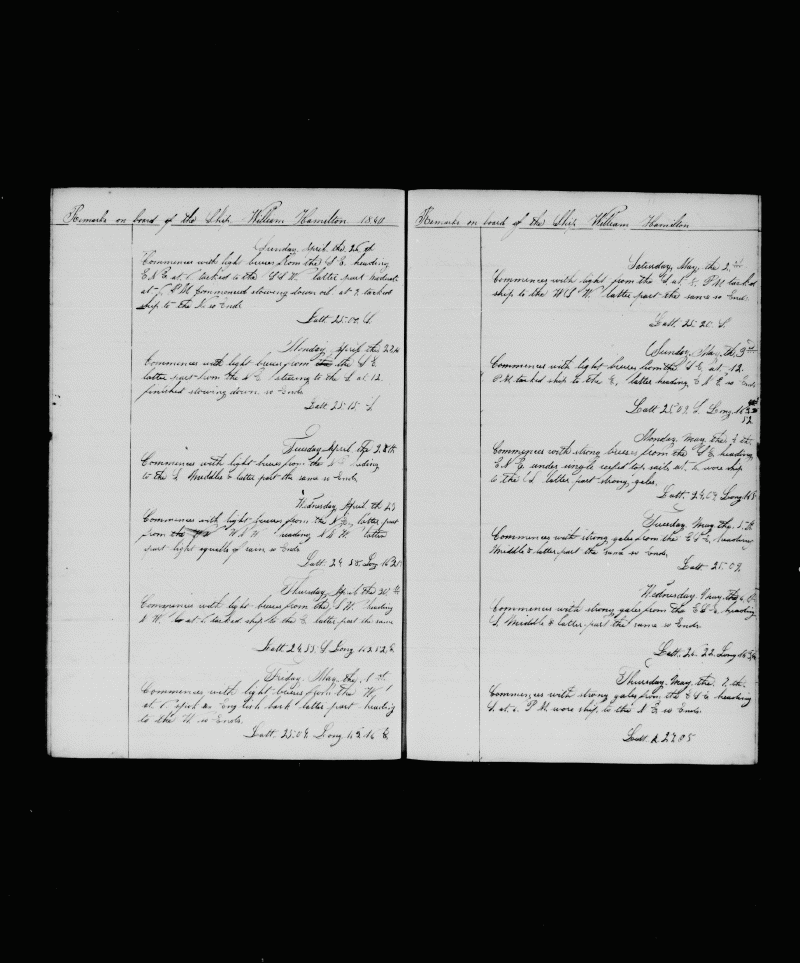 Remarks on board of the Ship William Hamilton 1840
Sunday April the 26th
Commences with light breeses from the S E. heading
E N E at tacked to the S S W. latter part
at P.M. commenced stowing down oil at 9 tacked
ship to the N. so Ends
Latt 25.09 S
Monday April the 27th
Commences with light breeses from the S E
latter part from the N E stering to the S at 12
finished stowing down so Ends
Latt 25.15 S
Tuesday April the 28th
Commences with light breeses from the heading
to the S Middle & latter part the same so Ends
Wednesday April the 29
Commences with light breeses from the latter part
from the W N W heading N N W. latter
part light squalls of rain so Ends
Latt 24 58 Long
Thursday April the 30th
Commences with light breeses from the S W. heading
N W. at 6 tacked ship to the E latter part the same
Latt. 24.33. S Long 162.52 E
Friday May the 1st
Commences with light breeses from the W.
at spok an English bark latter part heading
to the so Ends
Latt 25.09 Long 162.16 E.
Remarks on board of the Ship William Hamilton
Saturday May the 2nd
Commences with light from the S. at P M tacked
ship to the W S W. latter part the same so Ends
Latt 25.20. S.
Sunday May th 3rd
Commences with light breeses from the S E at 12
P.M. tacked ship to the E. latter heading E N E so Ends
Latt 25.09 S. Long
52
Monday May the 4th
Commences with strong breeses from the S E heading
E N E. under single reefed top sails at wore ship
to the S latter part strong gales
Latt. 24.09 Long
Tuesday May the 5th
Commences with strong gales from the E S E. heading
Middle & latter part the same so Ends
Latt 25.09.
Wednesday May the 6th
Commences with strong gales from the E S E. heading
S. Middle & latter part the same so Ends
Latt. 24.22 Long
Thursday May the 7th
Commences with strong gales from the E S E heading
S. at P.M. wore ship to the N E. so Ends.
Latt. 24.05